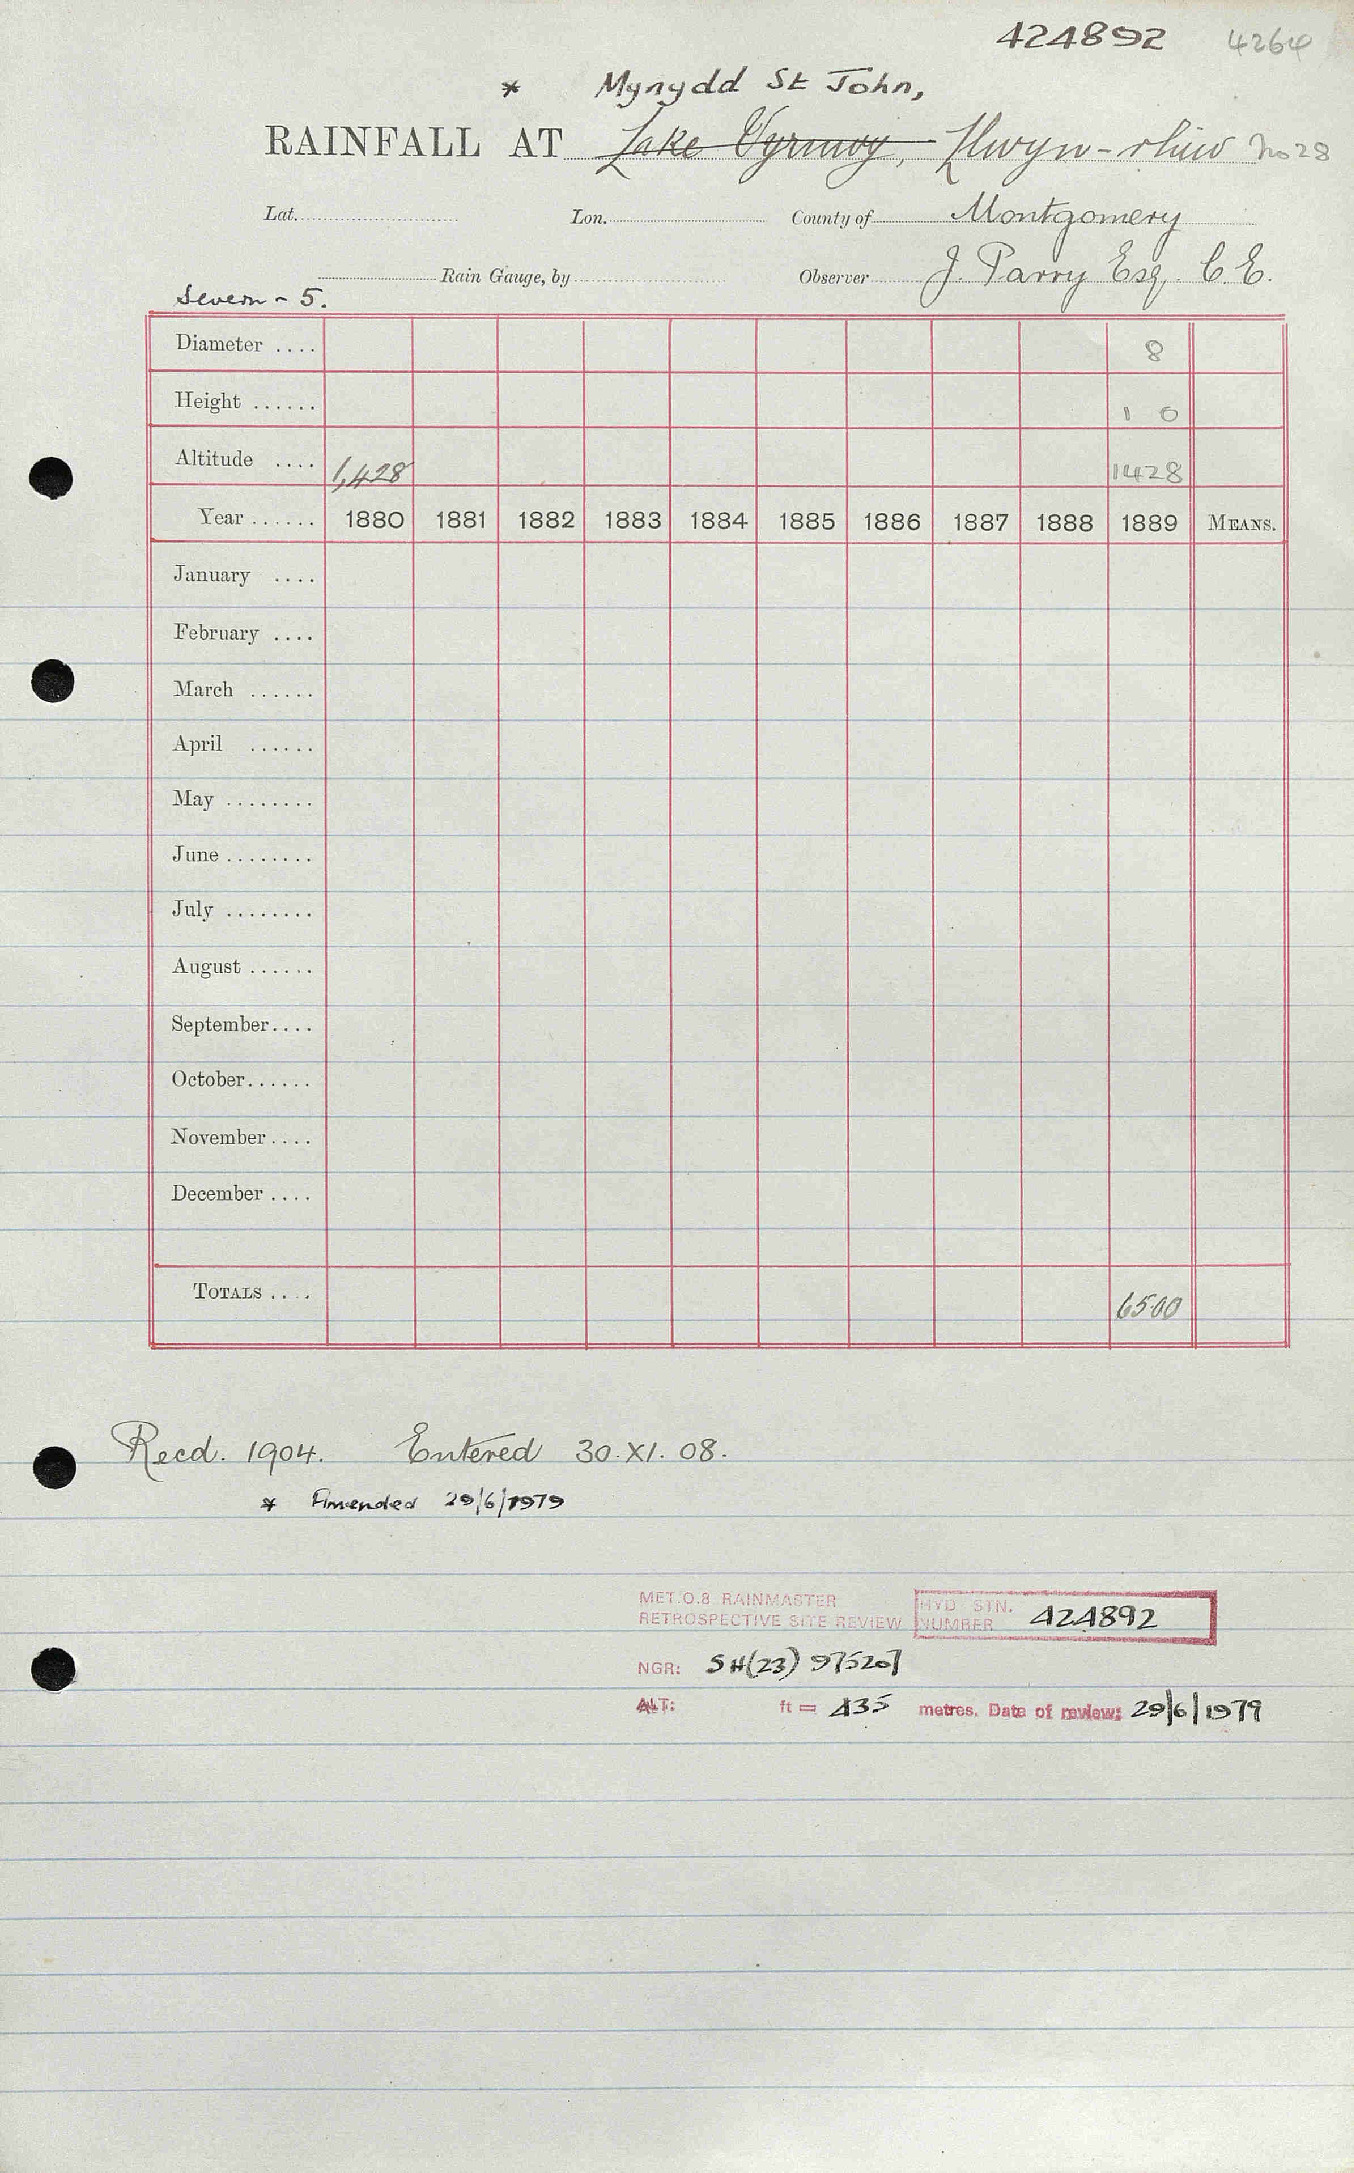 424892 4264
* Mynydd St John,
RAINFALL AT Lake Vyrnwy, Llwyn-rhiw No 28
Lat. Lon. County of Montgomery
Rain Gauge, by Observer J. Parry Esq. C.E.
Severn - 5.
Diameter .... 8
Height ...... 1 0
Altitude .... 1,428 1428
Year ...... 1880 1881 1882 1883 1884 1885 1886 1887 1888 1889 MEANS.
January ....
February ....
March ......
April ......
May ........
June ........
July ........
August ......
September....
October......
November....
December ....
TOTALS .... 6500
Recd. 1904. Entered 30.XI.08.
* Amended 29/6/1979
MET.O.8 RAINMASTER
RETROSPECTIVE SITE REVIEW HYD STN. NUMBER 424892
NGR: SH(23) 975207
ALT: ft = 435 metres. Date of review: 29/6/1979